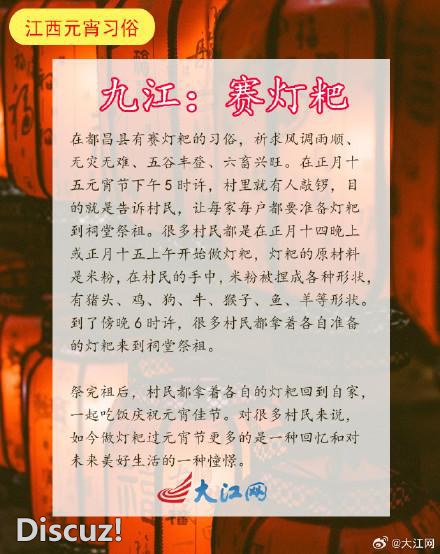 江西元宵习俗
九江：赛灯粑
在都昌县有赛灯粑的习俗，祈求风调雨顺、
无灾无难、五谷丰登、六畜兴旺。在正月十
五元宵节下午5时许，村里就有人敲锣，目
的就是告诉村民，让每家每户都要准备灯粑
到祠堂祭祖。很多村民都是在正月十四晚上
或正月十五上午开始做灯粑，灯粑的原材料
是米粉，在村民的手中，米粉被捏成各种形状，
有猪头、鸡、狗、牛、猴子、鱼、羊等形状。
到了傍晚6时许，很多村民都拿着各自准备
的灯粑来到祠堂祭祖。
祭完祖后，村民都拿着各自的灯粑回到自家，
一起吃饭庆祝元宵佳节。对很多村民来说，
如今做灯粑过元宵节更多的是一种回忆和对
未来美好生活的一种憧憬。
大江网
Discuz!
@大江网